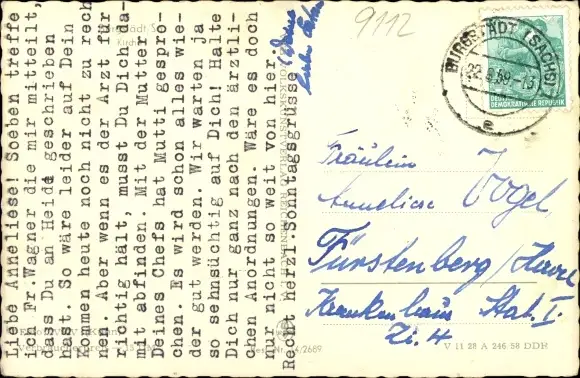 Liebe Anneliese! Soeben treffe
ich Fr.Wagner die mir mitteilt,
dass Du an Heide geschrieben
hast. So wäre leider auf Dein
Kommen heute noch nicht zu rech
nen. Aber wenn es der Arzt für
richtig hält, musst Du Dich da-
mit abfinden. Mit der Mutter
Deines Chefs hat Mutti gespro-
chen. Es wird schon alles wie-
der gut werden. Wir warten ja
so sehnsüchtig auf Dich! Halte
Dich nur ganz nach den ärztli-
chen Anordnungen. Wäre es doch
nur nicht so weit von hier.
Recht herzl.Sonntagsgrüsse
9112
BURGSTÄDT (SACHS)
e
DEUTSCHE
DEMOKRATISCHE REPUBLIK
Fräulein
Anneliese Vogel
Fürstenberg/Havel
Krankenhaus Stat. I.
Zi. 4
V 11 28 A 246 58 DDR